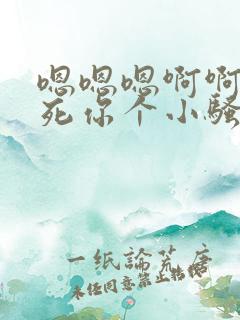 嗯嗯嗯啊啊
死你个小骚
一纸論荒唐
未经同意禁止转载